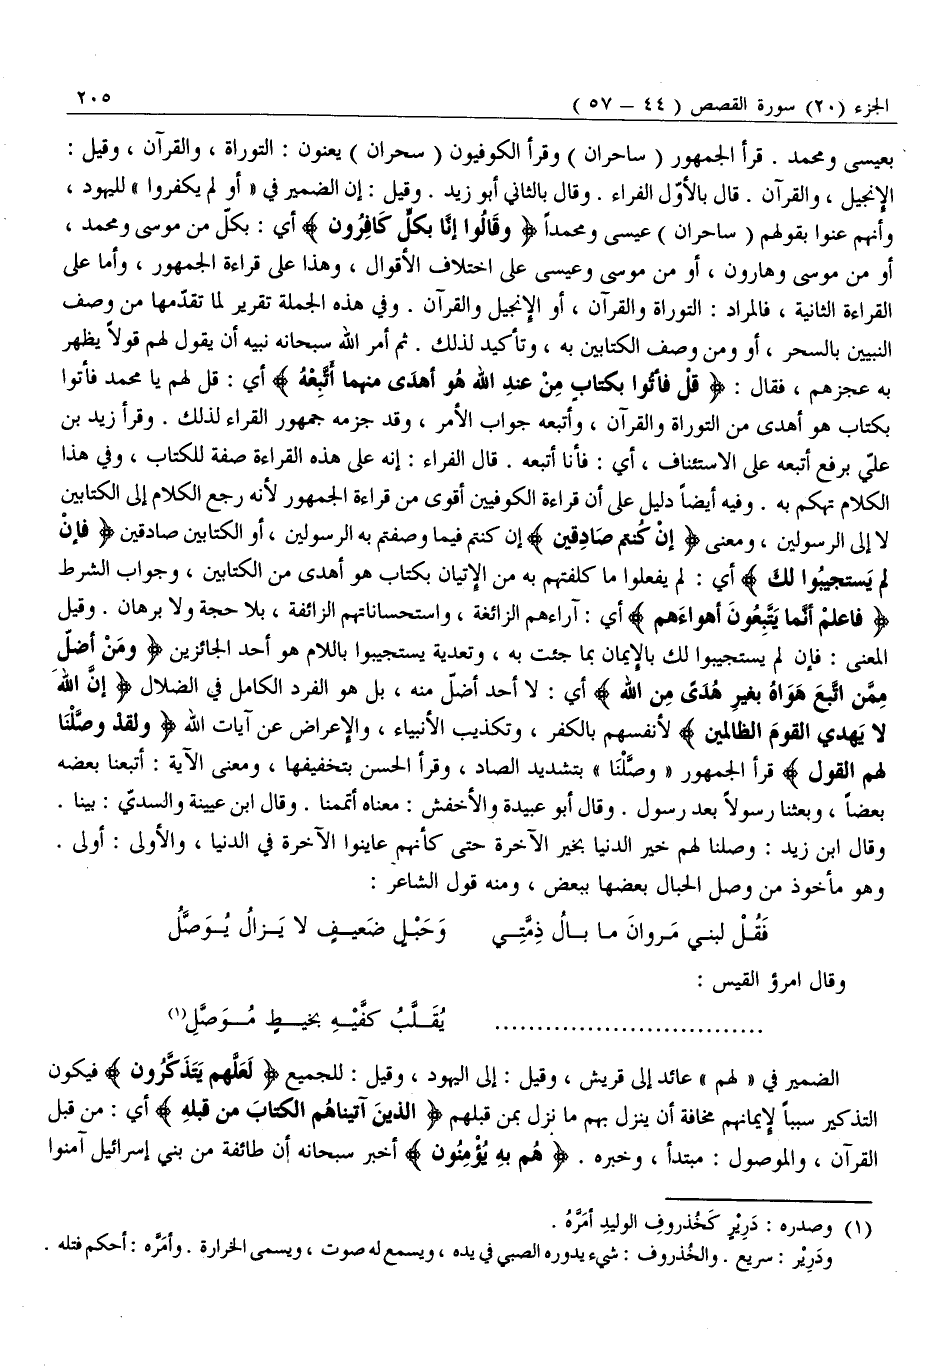 الجزء (٢٠) سورة القصص ( ٤٤ – ٥٧ )
٢٠٥
بعيسى ومحمد . قرأ الجمهور ( ساحران ) وقرأ الكوفيون ( سحران ) يعنون : التوراة ، والقرآن ، وقيل :
الإنجيل ، والقرآن . قال بالأوّل الفراء . وقال بالثاني أبو زيد . وقيل : إن الضمير في « أو لم يكفروا » لليهود ،
وأنهم عنوا بقولهم ( ساحران ) عيسى ومحمداً ﴿ وقَالُوا إنَّا بكلّ كَافِرُون ﴾ أي : بكلّ من موسى ومحمد ،
أو من موسى وهارون ، أو من موسى وعيسى على اختلاف الأقوال ، وهذا على قراءة الجمهور ، وأما على
القراءة الثانية ، فالمراد : التوراة والقرآن ، أو الإنجيل والقرآن . وفي هذه الجملة تقرير لما تقدّمها من وصف
النبيين بالسحر ، أو ومن وصف الكتابين به ، وتأكيد لذلك . ثم أمر الله سبحانه نبيه أن يقول لهم قولاً يظهر
به عجزهم ، فقال : ﴿ قلْ فأتُوا بكتابٍ مِنْ عندِ الله هُو أهدَى منهما أَتَّبِعْهُ ﴾ أي : قل لهم يا محمد فأتوا
بكتاب هو أهدى من التوراة والقرآن ، وأتبعه جواب الأمر ، وقد جزمه جمهور القراء لذلك . وقرأ زيد بن
عليّ برفع أتبعه على الاستئناف ، أي : فأنا أتبعه . قال الفراء : إنه على هذه القراءة صفة للكتاب ، وفي هذا
الكلام تهكم به . وفيه أيضاً دليل على أن قراءة الكوفيين أقوى من قراءة الجمهور لأنه رجع الكلام إلى الكتابين
لا إلى الرسولين ، ومعنى ﴿ إنْ كُنتم صَادِقين ﴾ إن كنتم فيما وصفتم به الرسولين ، أو الكتابين صادقين ﴿ فإنْ
لم يَستجيبُوا لكَ ﴾ أي : لم يفعلوا ما كلفتهم به من الإتيان بكتاب هو أهدى من الكتابين ، وجواب الشرط
﴿ فاعلمْ أنَّما يَتَّبِعُونَ أهواءَهم ﴾ أي : آراءهم الزائغة ، واستحساناتهم الزائفة ، بلا حجة ولا برهان . وقيل
المعنى : فإن لم يستجيبوا لك بالإيمان بما جئت به ، وتعدية يستجيبوا باللام هو أحد الجائزين ﴿ ومَنْ أضلّ
مِمَّن اتَّبعَ هَوَاهُ بغيرِ هُدَىً مِن الله ﴾ أي : لا أحد أضلّ منه ، بل هو الفرد الكامل في الضلال ﴿ إنَّ اللهَ
لا يَهدي القومَ الظالمين ﴾ لأنفسهم بالكفر ، وتكذيب الأنبياء ، والإعراض عن آيات الله ﴿ ولقدْ وصلَّنَا
لهم القول ﴾ قرأ الجمهور « وصَّلْنَا » بتشديد الصاد ، وقرأ الحسن بتخفيفها ، ومعنى الآية : أتبعنا بعضه
بعضاً ، وبعثنا رسولاً بعد رسول . وقال أبو عبيدة والأخفش : معناه أتممنا . وقال ابن عيينة والسديّ : بينا .
وقال ابن زيد : وصلنا لهم خير الدنيا بخير الآخرة حتى كأنهم عاينوا الآخرة في الدنيا ، والأولى : أولى .
وهو مأخوذ من وصل الحبال بعضها ببعض ، ومنه قول الشاعر :
فَقُـلْ لبنـي مَـروانَ مـا بـالُ ذِمَّتِـي وَحَبْـلٍ ضَعيـفٍ لا يَـزالُ يُـوَصَّلُ
وقال امرؤ القيس :
................................ يُقَــلِّبُ كفَّيْــهِ بخيــطٍ مُــوَصَّلِ(١)
الضمير في « لهم » عائد إلى قريش ، وقيل : إلى اليهود ، وقيل : للجميع ﴿ لَعَلَّهم يَتَذَكَّرُون ﴾ فيكون
التذكير سبباً لإيمانهم مخافة أن ينزل بهم ما نزل بمن قبلهم ﴿ الذينَ آتيناهُم الكتابَ من قبلهِ ﴾ أي : من قبل
القرآن ، والموصول : مبتدأ ، وخبره . ﴿ هُم بهِ يُؤْمِنُون ﴾ أخبر سبحانه أن طائفة من بني إسرائيل آمنوا
(١) وصدره : دَرِيْرٍ كَخُذروفِ الوليدِ أمَرَّهُ .
ودَرِيْر : سريع . والخُذروف : شيء يدوره الصبي في يده ، ويسمع له صوت ، ويسمى الخرارة . وأمَرَّه : أحكم فتله .